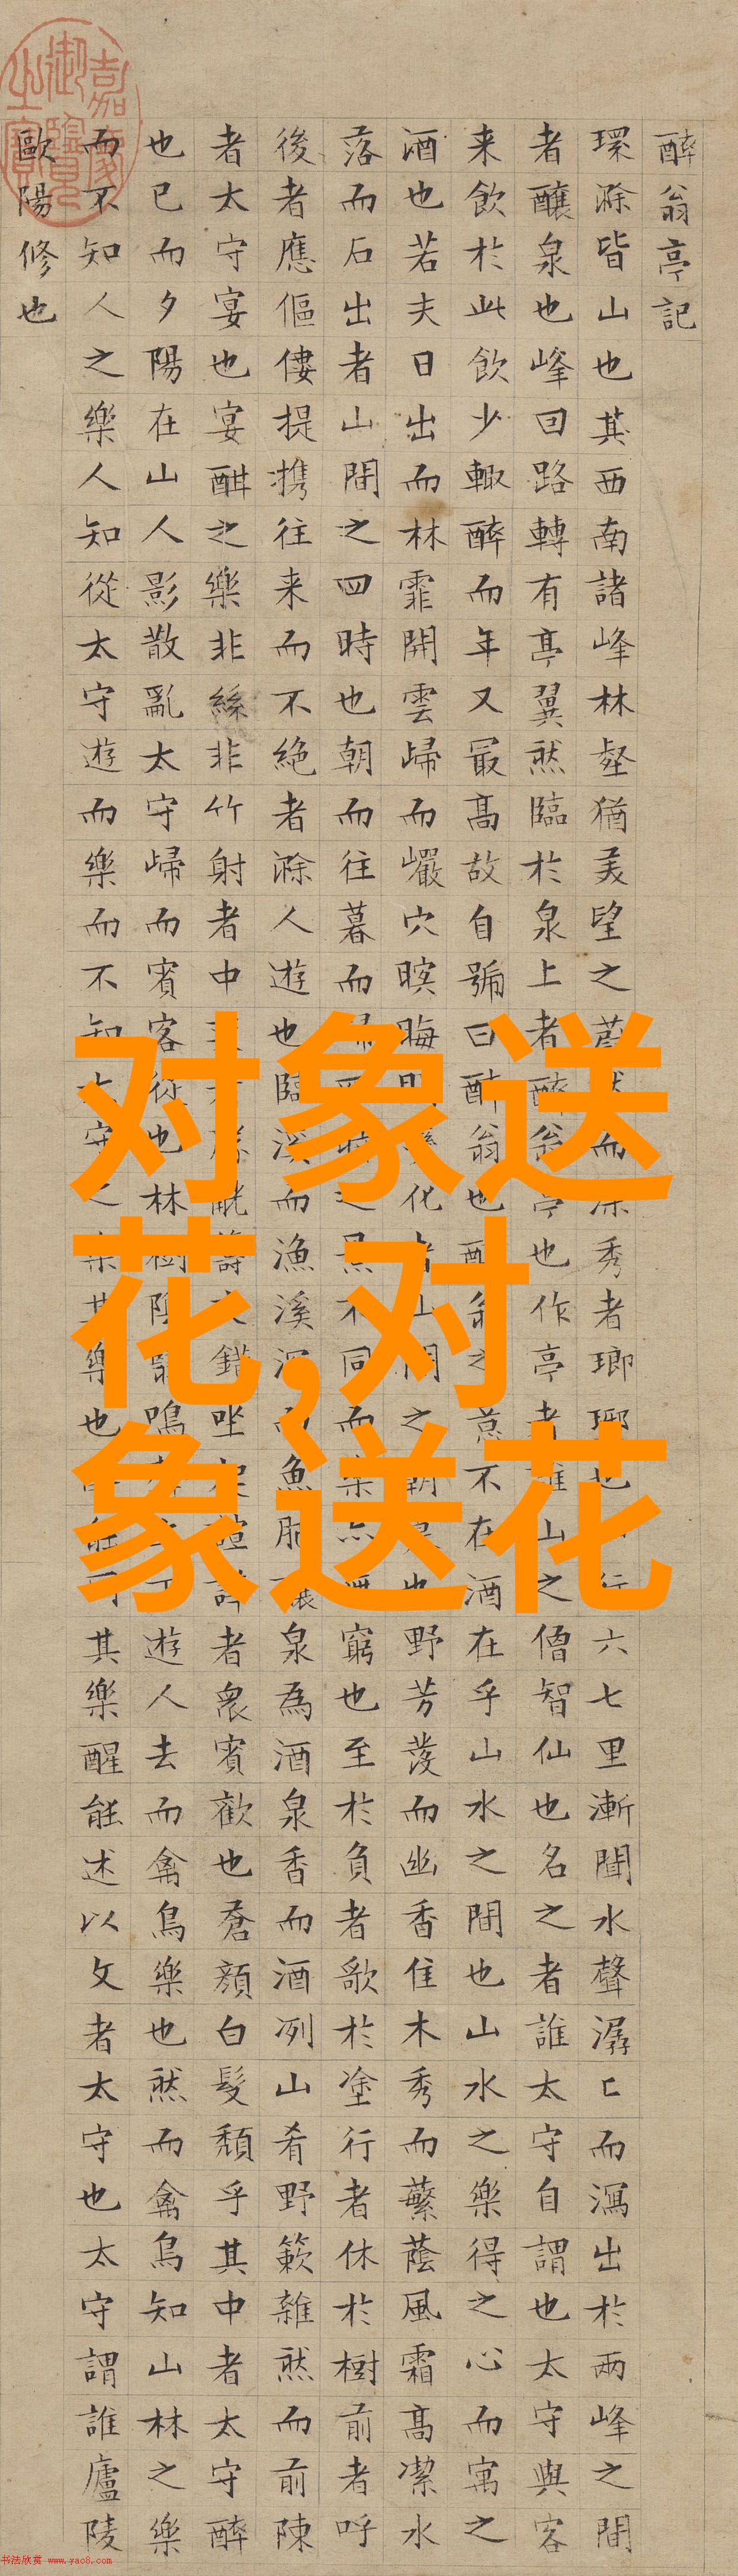 醉翁亭記
環滁皆山也其西南諸峰林壑猶美望之蔚然而深秀者瑯琊也行六七里漸聞水聲潺匕而瀉出於兩峰之間
者釀泉也峰回路轉有亭翼然臨於泉上者醉翁亭也作亭者誰山之僧智仙也名之者誰太守自謂也太守與客
来飲於此飲少輒醉而年又最高故自號曰醉翁也醉翁之意不在酒在乎山水之間也山水之樂得之心而寓之
酒也若夫日出而林霏開雲歸而巖穴暝晦明變化者山間之朝暮也野芳發而幽香佳木秀而蘩蔭風霜高潔水
落而石出者山間之四時也朝而往暮而歸四時之景不同而樂亦無窮也至於負者歌於塗行者休於樹前者呼
後者應傴僂提攜往来而不絕者滁人遊也臨溪而漁溪深而魚肥釀泉為酒泉香而酒冽山肴野蔌雜然而前陳
者太守宴也宴酣之樂非絲非竹射者中奕者勝觥籌交錯坐起諠譁者衆賓歡也蒼顏白髮頹乎其中者太守醉
也已而夕陽在山人影散亂太守歸而賓客從也林樹陰翳鳴聲上下遊人去而禽鳥樂也然而禽鳥知山林之樂
而不知人之樂人知從太守遊而樂而不知太守之樂其樂也醉能同其樂醒能述以文者太守也太守謂誰廬陵
歐陽修也
嘉慶御覽之寶
对象送
花,对
象送花
书法欣赏 www.yac8.com